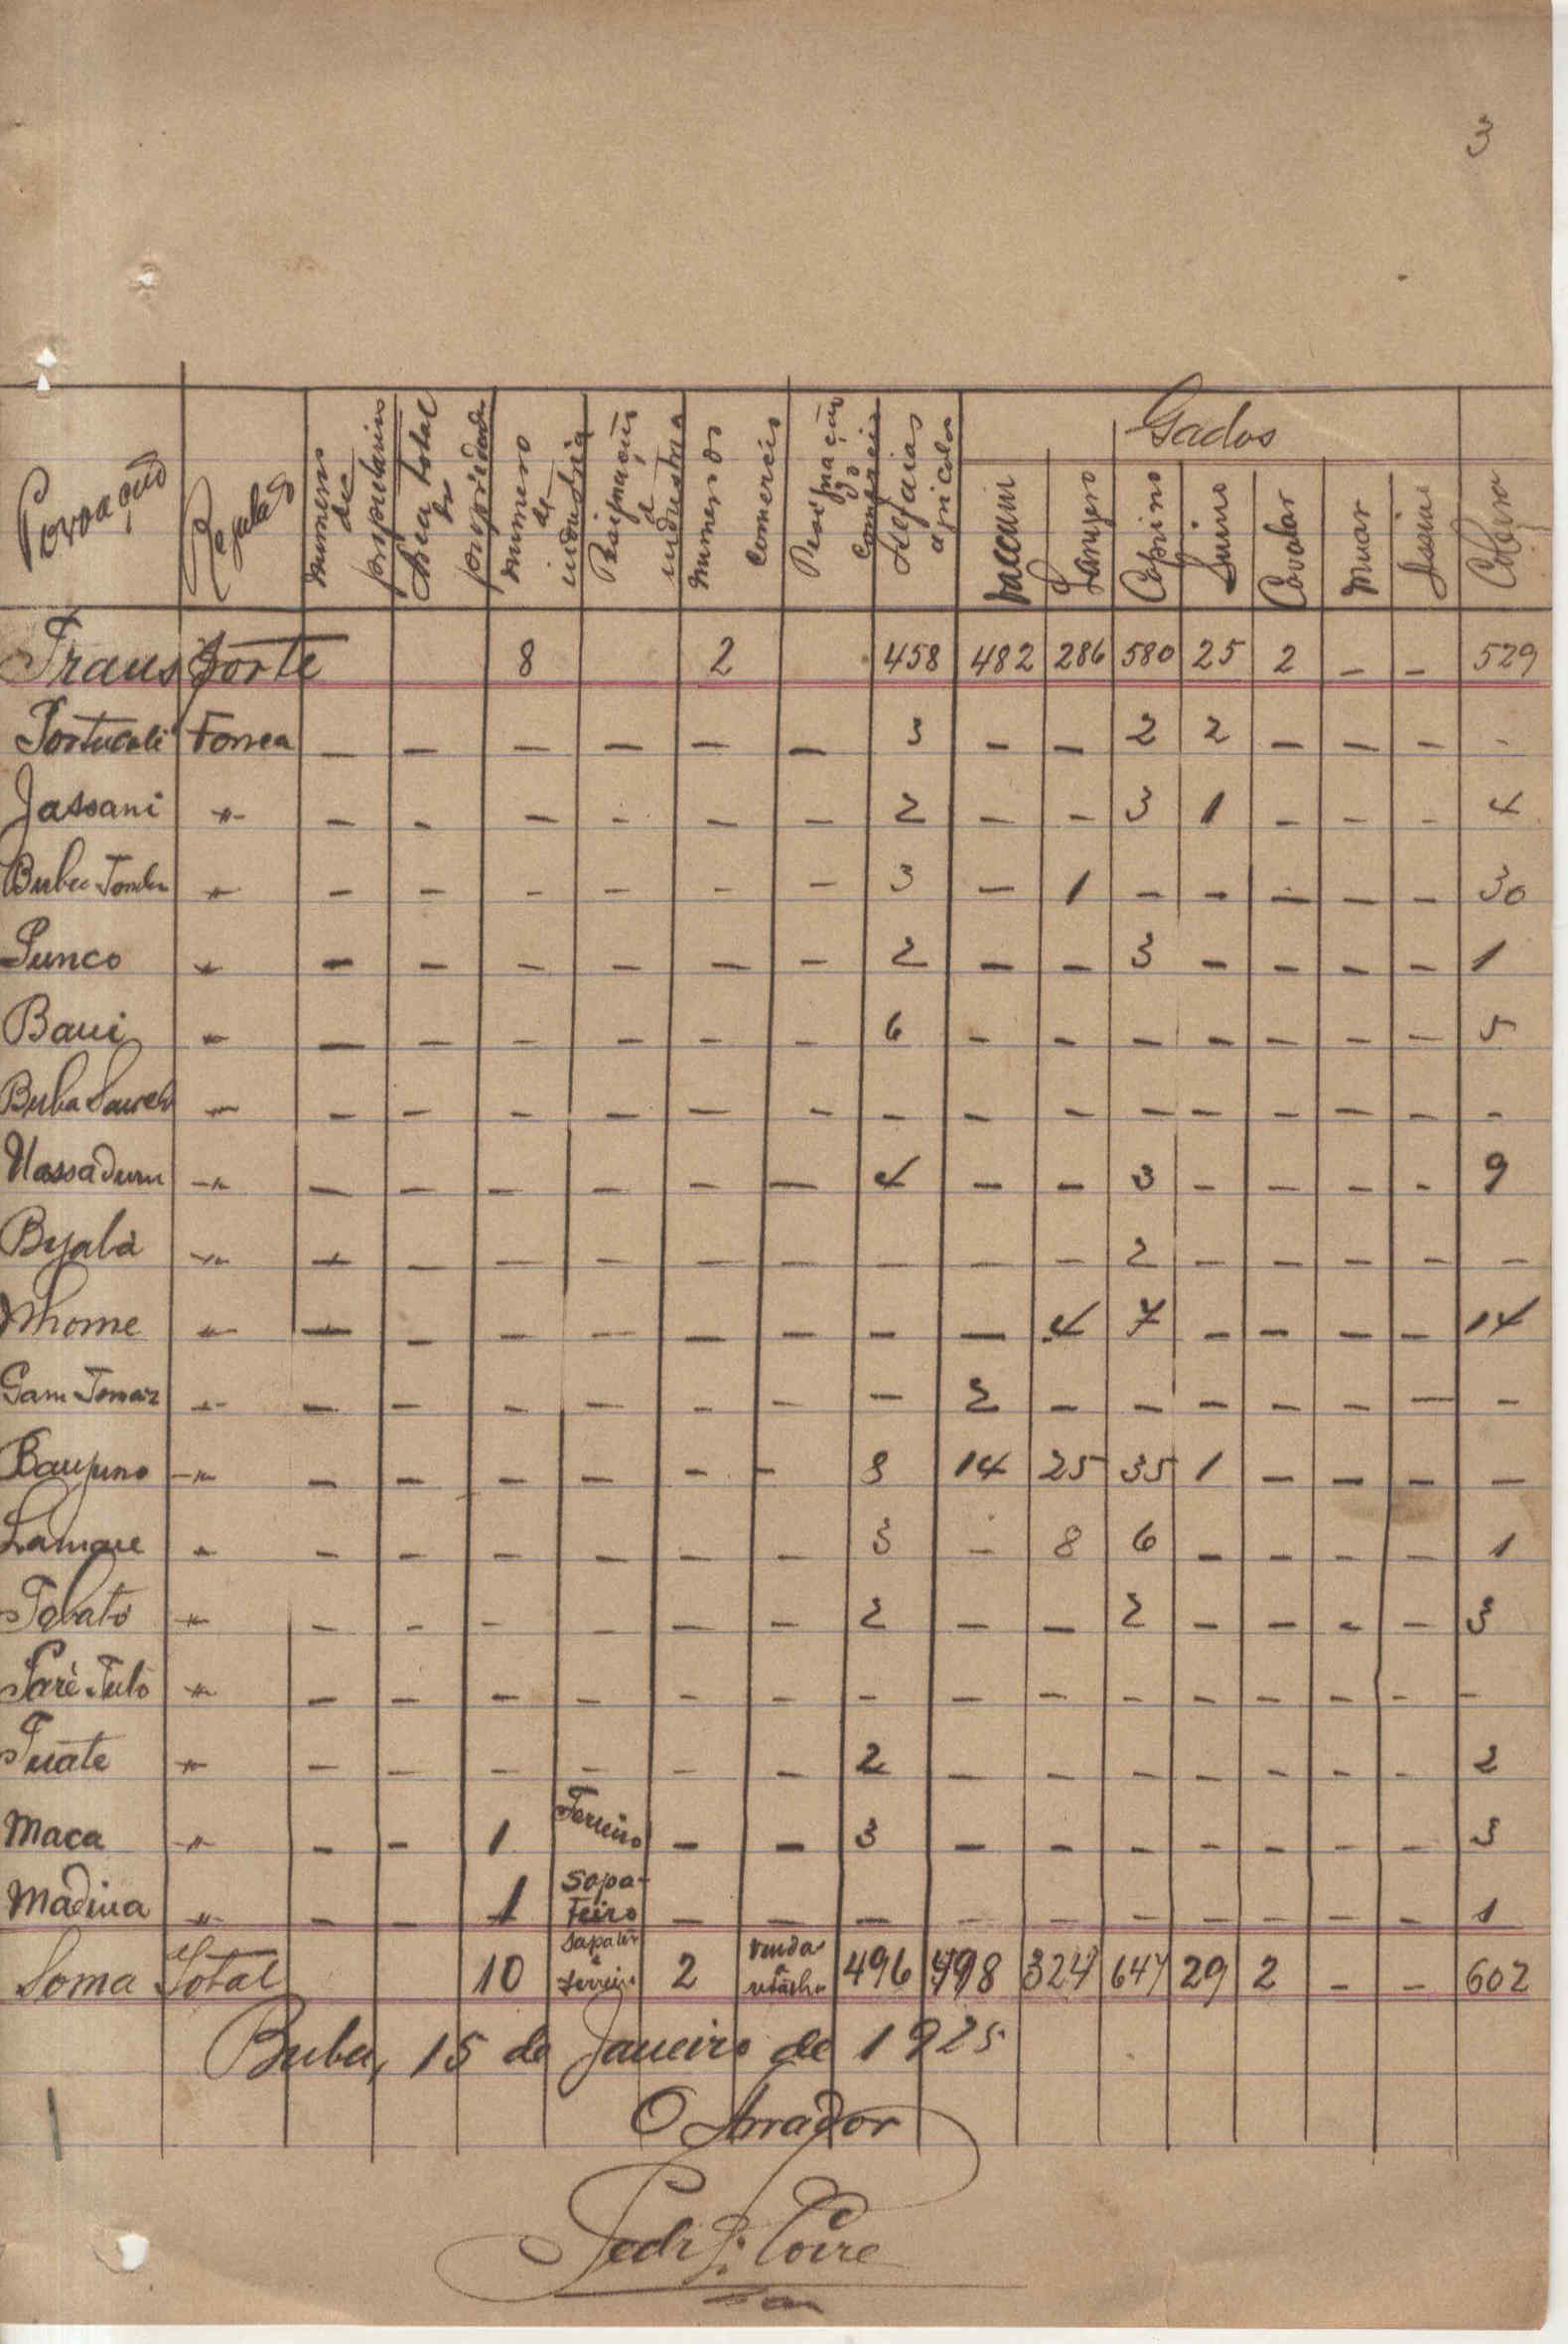 3
Povoação Regulado Numeros dec propietarios Area total da propriedade numero de industria Designação d industria numero do Comercio Designação do Comercio Alfaias agricolas Gados
vaccum Lanigero Caprino Suino Cavalar Muar Asini Colera
Transporte 8 2 458 482 286 580 25 2 – – 529
Portucali Forrea – – – – – – 3 – – 2 2 – – – -
Jassani -"- – – – – – – 2 – – 3 1 – – – 4
Buba Tomba -"- – – – – – – 3 – 1 – – – – – 30
Sunco -"- – – – – – – 2 – – 3 – – – – 1
Baui -"- – – – – – – 6 – – – – – – – 5
Buba -"- – – – – – – – – – – – – – – –
Nassaduru -"- – – – – – – 4 – – 3 – – – – 9
Byabá -"- – – – – – – – – – 2 – – – – –
Nhome -"- – – – – – – – – 4 7 – – – – 14
Gam Tomaz -"- – – – – – – – 2 – – – – – – –
Baujuno -"- – – – – – – 3 14 25 35 1 – – – –
Lamane -"- – – – – – – 3 – 8 6 – – – – 1
Tabató -"- – – – – – – 2 – – 2 – – – – 3
Saré Tuló -"- – – – – – – – – – – – – – – –
Tuate -"- – – – – – – 2 – – – – – – – 2
Maca -"- – – 1 Ferreiro – – 3 – – – – – – – 3
Madina -"- – – 1 Sapa-teiro – – – – – – – – – – 1
Soma Total 10 Sapatei e ferreiro 2 venda a retalho 496 498 324 647 29 2 – – 602
Buba, 15 de Janeiro de 1925
O Arrador